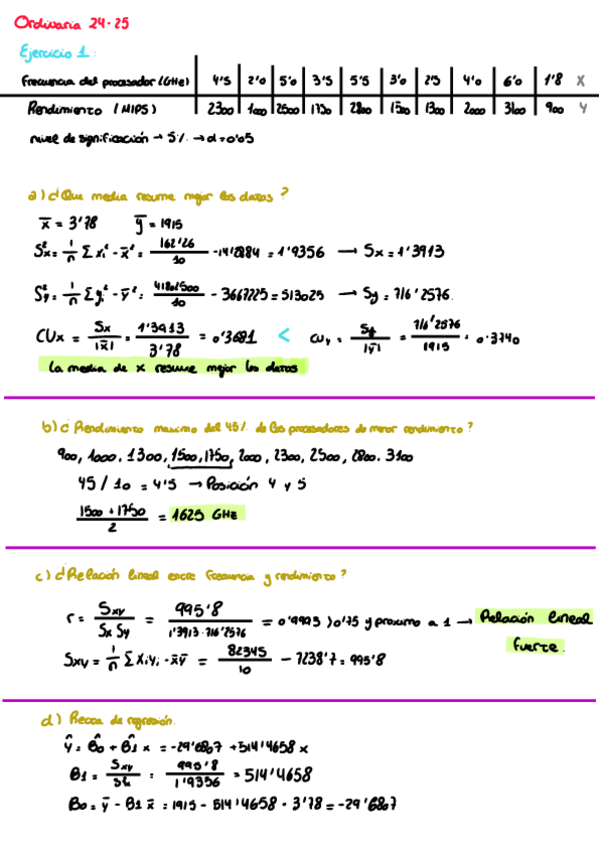 Ordinaria 24-25
Ejercicio 1:
Frecuencia del procesador (GHz) 4'5 2'0 5'0 3'5 5'5 3'0 2'5 4'0 6'0 1'8 X
Rendimiento (MIPS) 2300 1000 2500 1750 2800 1500 1300 2000 3100 900 Y
nivel de significación → 5% → α = 0'05
a) ¿Que media resume mejor los datos?
x̄ = 3'78 ȳ = 1915
Sx² = 1/n Σ xi² - x̄² = 162'26/10 - 14'2884 = 1'9356 → Sx = 1'3913
Sy² = 1/n Σ yi² - ȳ² = 41801500/10 - 3667225 = 513025 → Sy = 716'2576.
CVx = Sx/|x̄| = 1'3913/3'78 = 0'3681 < CVy = Sy/|ȳ| = 716'2576/1915 = 0'3740
La media de x resume mejor los datos
b) ¿Rendimiento maximo del 45% de los procesadores de menor rendimiento?
900, 1000, 1300, 1500, 1750, 2000, 2300, 2500, 2800, 3100
45/10 = 4'5 → Posición 4 y 5
1500 + 1750/2 = 1625 GHz
c) ¿Relación lineal entre frecuencia y rendimiento?
r = Sxy/Sx Sy = 995'8/1'3913·716'2576 = 0'9993 > 0'75 y proximo a 1 → Relación lineal
fuerte.
Sxy = 1/n Σ xi yi - x̄ȳ = 82345/10 - 7238'7 = 995'8
d) Recta de regresión.
ŷ = B̂0 + B̂1 x = -29'6807 + 514'4658 x
B1 = Sxy/Sx² = 995'8/1'9356 = 514'4658
B0 = ȳ - B1 x̄ = 1915 - 514'4658 · 3'78 = -29'6807